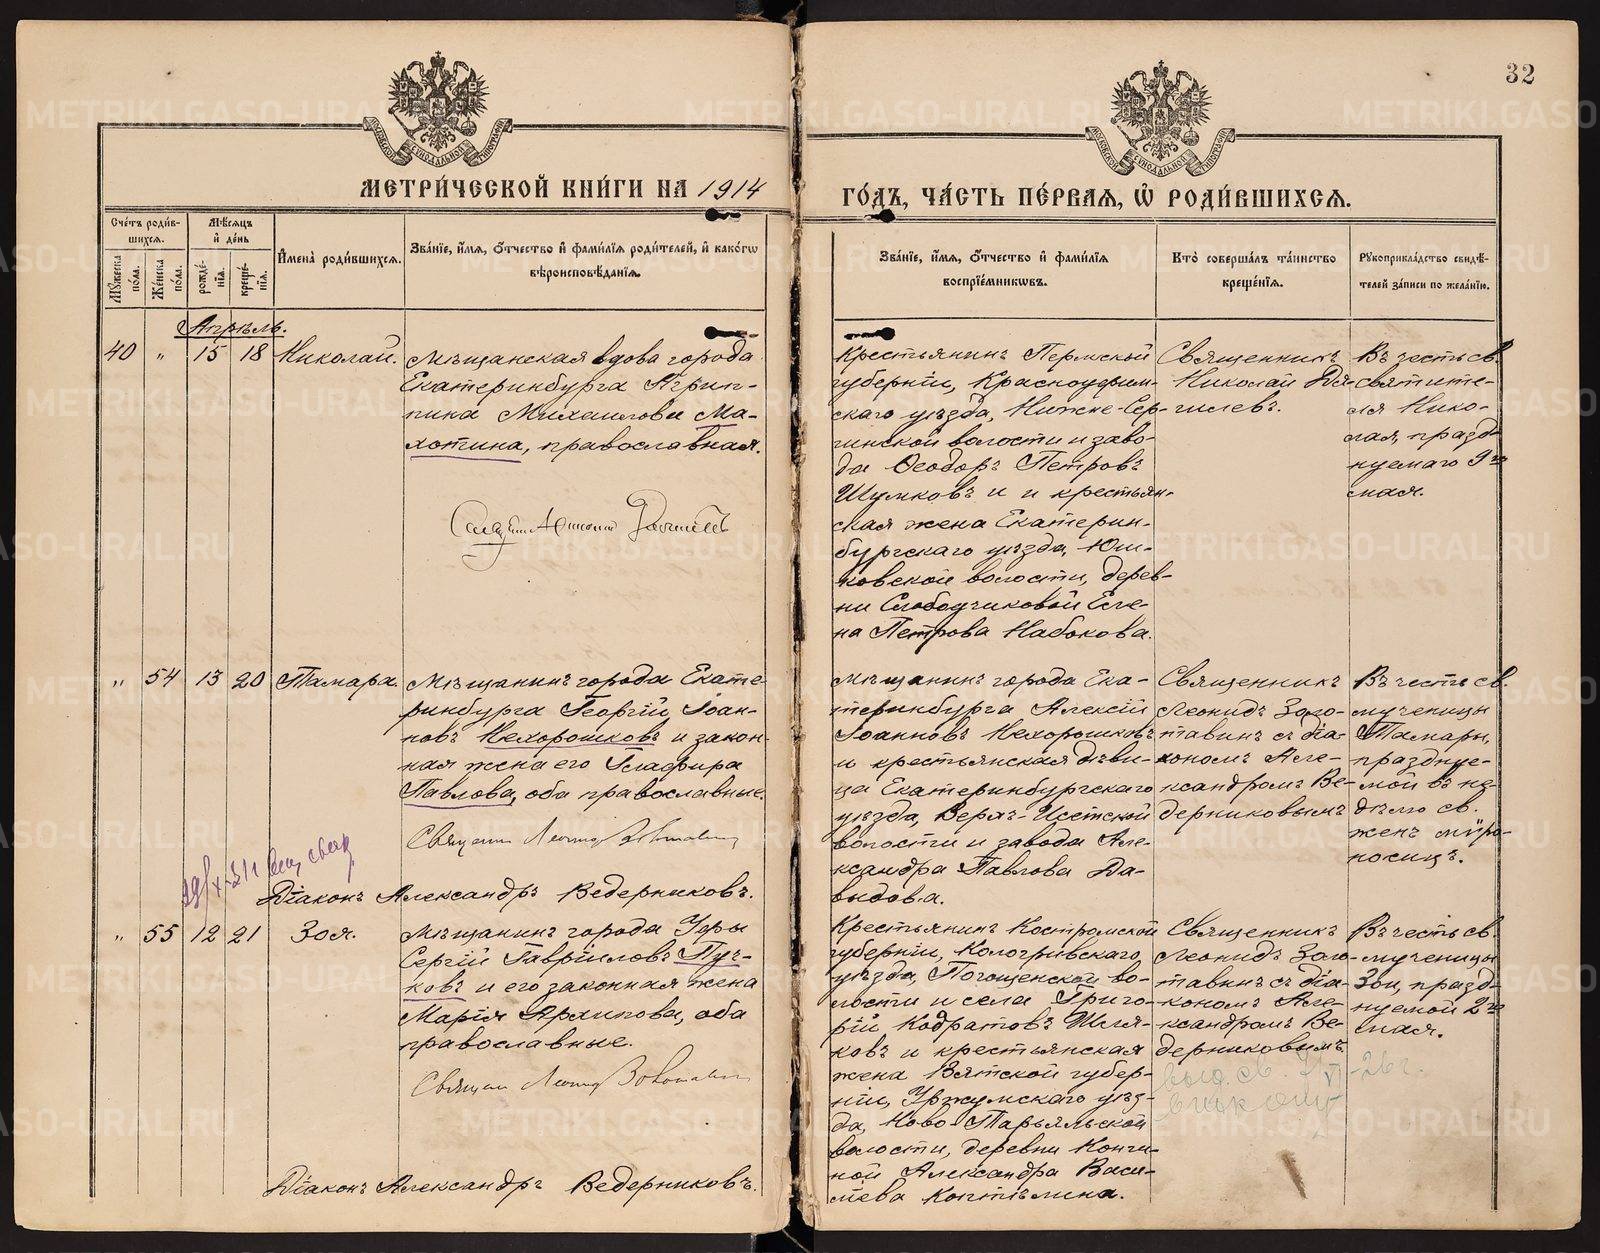 32
МЕТРИ́ЧЕСКОЙ КНИ́ГИ НА 1914
ГО́ДЪ, ЧА́СТЬ ПЕ́РВАЯ, Ѡ҆ РОДИ́ВШИХСЯ.
Сче́тъ роди́в-
шихся.
Мꙋ́жеска по́ла.
Же́нска по́ла.
Мѣ́сяцъ
и҆ де́нь
рожде́-
нїя.
креще́-
нїя.
И҆мена̀ роди́вшихся.
Зва́нїе, и҆́мя, ѻ҆́тчество и҆ фами́лїя роди́телей, и҆ како́гѡ
вѣроисповѣ́данїя.
Зва́нїе, и҆́мя, ѻ҆́тчество и҆ фами́лїя
воспрїе́мникѡвъ.
Кто̀ соверша́лъ та́инство
креще́нїя.
Рꙋкоприкла́дство свидѣ́-
телей за́писи по жела́нїю.
Апрѣль.
40 " 15 18 Николай.
Мѣщанская вдова города
Екатеринбурга Агрип-
пина Михаилова Ма-
хотина, православная.
Крестьянинъ Пермской
губерніи, Красноуфим-
скаго уѣзда, Нижне-Сер-
гинской волости и заво-
да Ѳеодоръ Петровъ
Шумковъ и и крестьян-
ская жена Екатерин-
бургскаго уѣзда, Юш-
ковской волости, дерев-
ни Слободчиковой Еле-
на Петрова Набокова.
Священникъ
Николай Дя-
гилевъ.
Въ честь св.
святите-
ля Нико-
лая, празд-
нуемаго 9го
мая.
" 54 13 20 Тамара.
Мѣщанинъ города Екате-
ринбурга Георгій Іоан-
новъ Нехорошковъ и закон-
ная жена его Глафира
Павлова, оба православные.
Священ Леонид
Діаконъ Александръ Ведерниковъ.
Мѣщанинъ города Ека-
теринбурга Алексій
Іоанновъ Нехорошковъ
и крестьянская дѣви-
ца Екатеринбургскаго
уѣзда, Верхъ-Исетской
волости и завода Але-
ксандра Павлова Да-
выдова.
Священникъ
Леонидъ Золо-
тавинъ съ діа-
кономъ Але-
ксандромъ Ве-
дерниковымъ
Въ честь св.
мученицы
Тамары,
празднуе-
мой въ не-
дѣлю св.
женъ мѵро-
носицъ.
" 55 12 21 Зоя.
Мѣщанинъ города Уфы
Сергій Гавріиловъ Пуч-
ковъ и его законная жена
Марія Архипова, оба
православные.
Священ Леонид
Діаконъ Александръ Ведерниковъ.
Крестьянинъ Костромской
губерніи, Кологривскаго
уѣзда, Погощенской во-
лости и села Григо-
рій Кодратовъ Шля-
ковъ и крестьянская
жена Вятской губер-
ніи, Уржумскаго уѣз-
да, Ново-Тарьяльской
волости, деревни Кончи-
ной Александра Васи-
льева Коптѣлина.
Священникъ
Леонидъ Золо-
тавинъ съ діа-
кономъ Але-
ксандромъ Ве-
дерниковымъ.
Въ честь св.
мученицы
Зои, празд-
нуемой 2го
мая.
METRIKI.GASO-URAL.RU